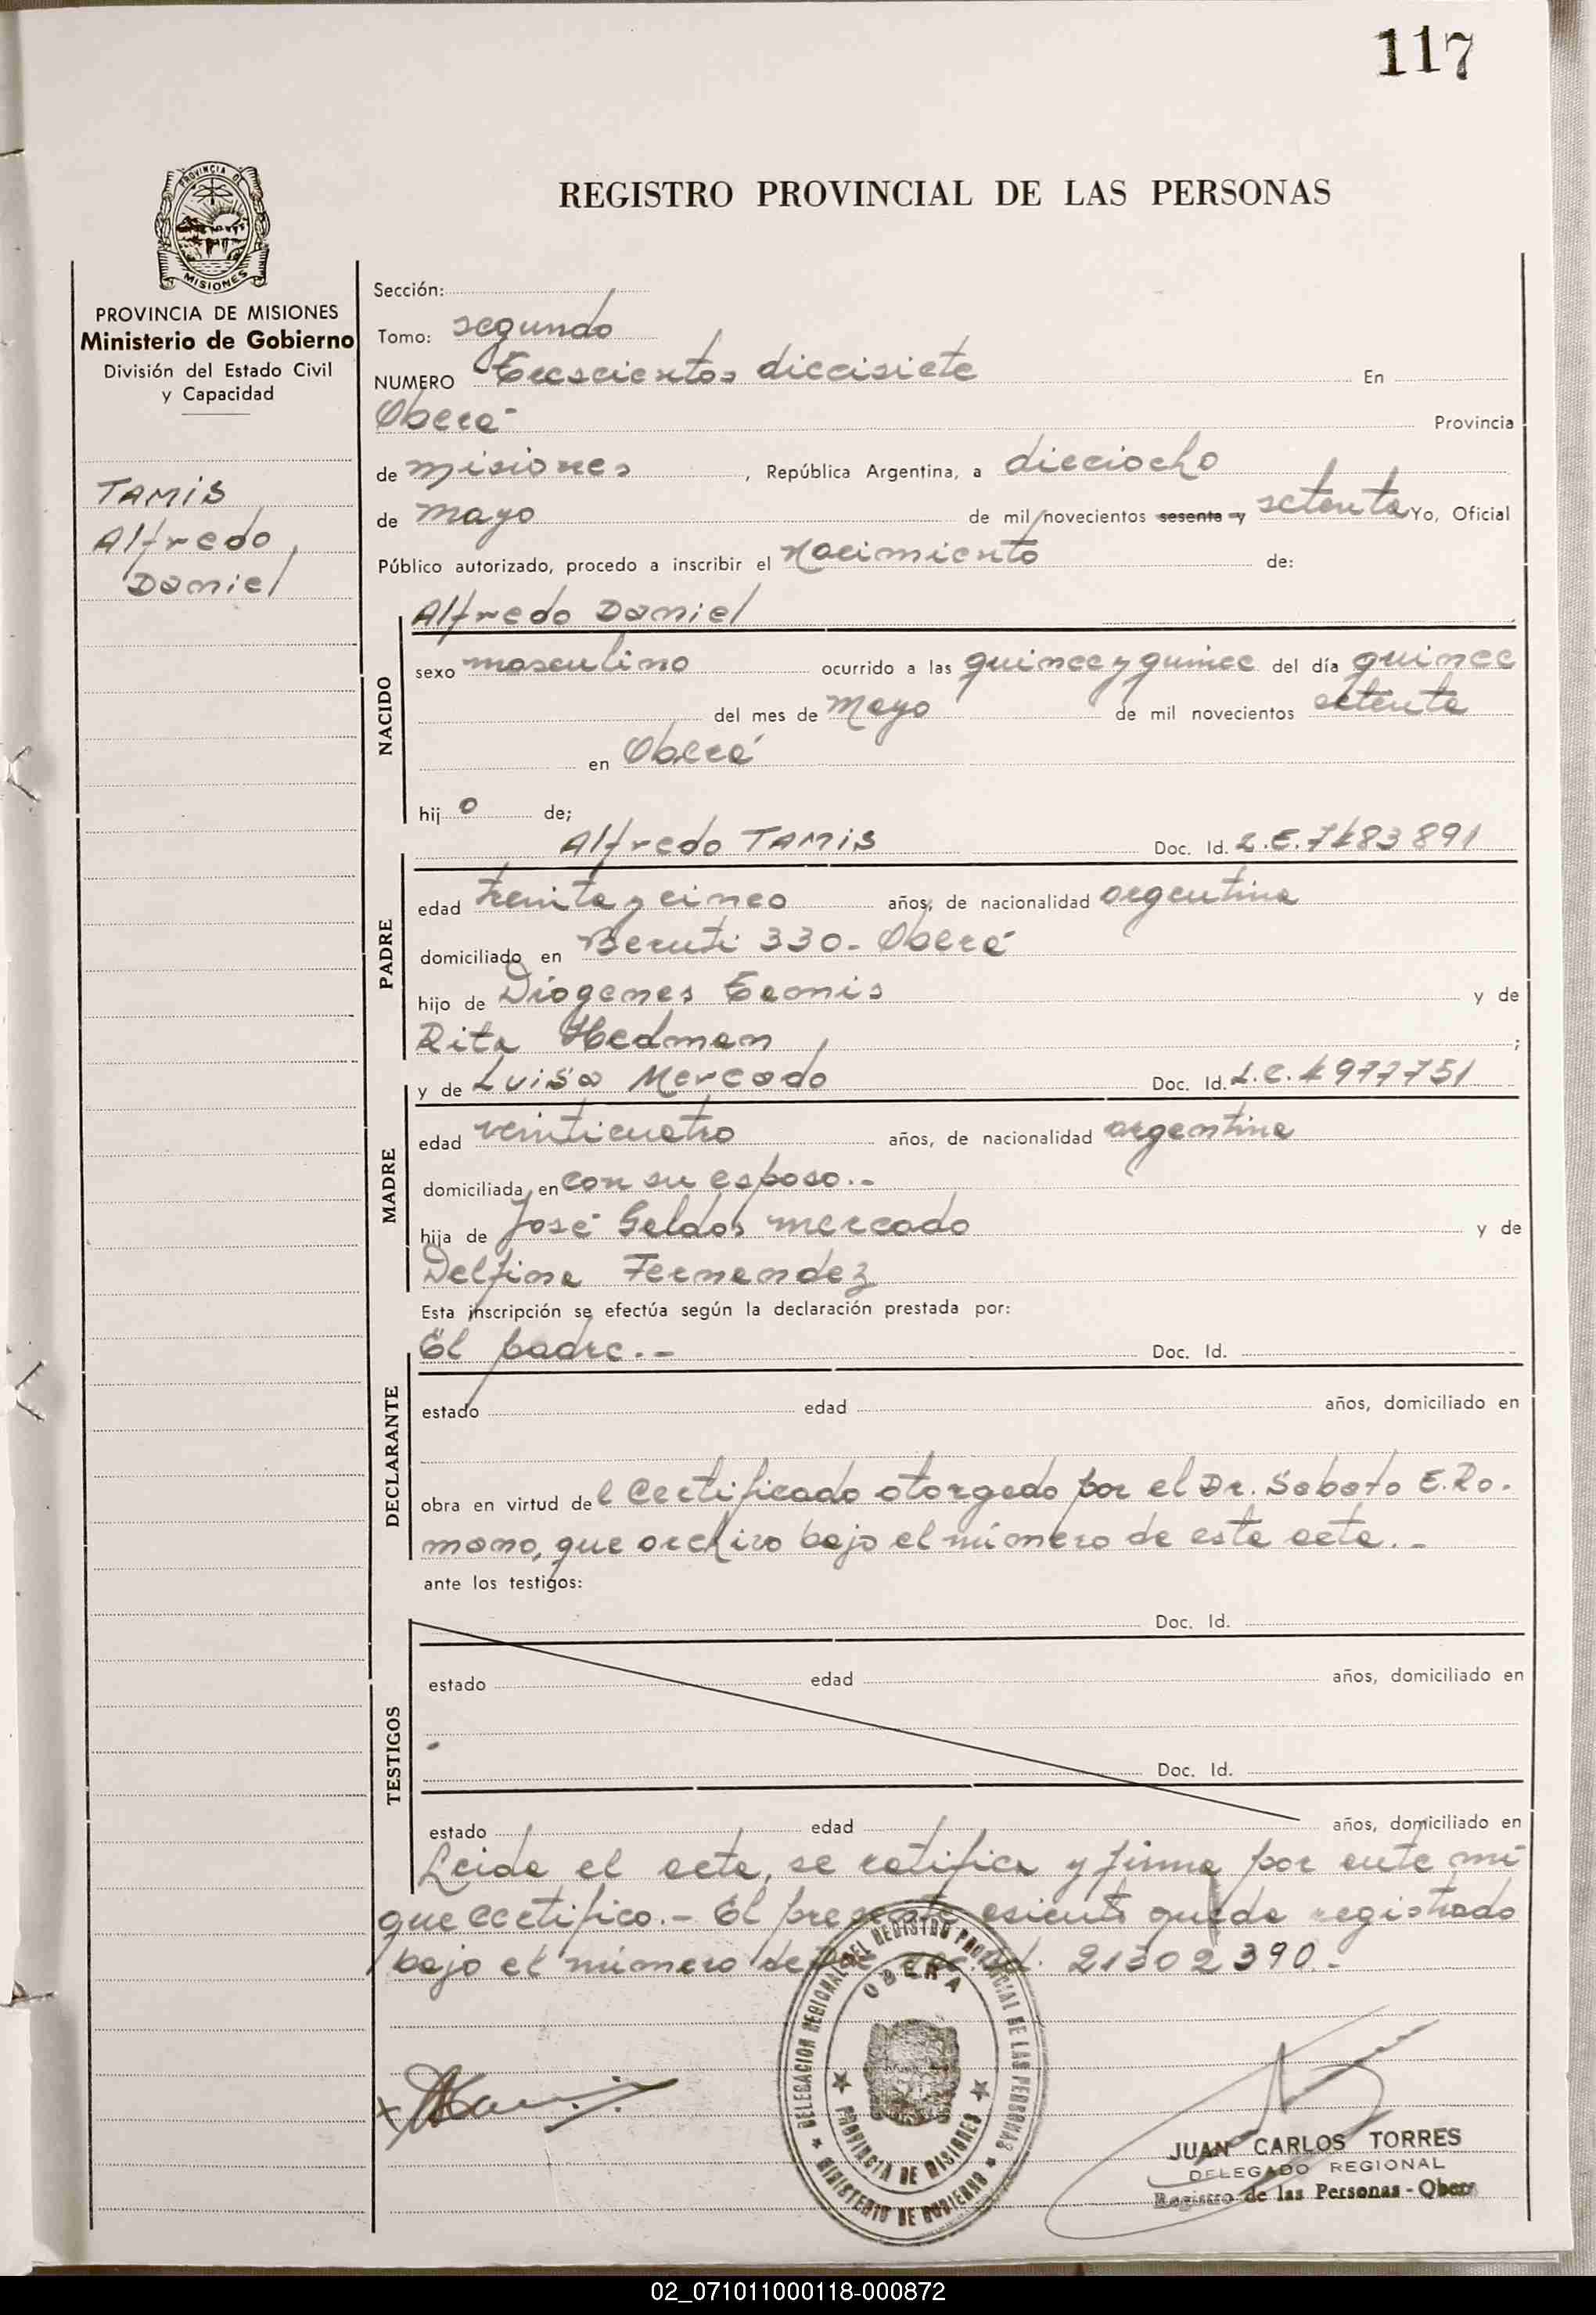 117
REGISTRO PROVINCIAL DE LAS PERSONAS
PROVINCIA DE MISIONES
PROVINCIA DE MISIONES
Ministerio de Gobierno
División del Estado Civil
y Capacidad
TAMIS
Alfredo
Daniel
Sección:
Tomo: segundo
NUMERO Trescientos diecisiete En
Oberá Provincia
de misiones, República Argentina, a dieciocho
de mayo de mil novecientos sesenta y setenta Yo, Oficial
Público autorizado, procedo a inscribir el Nacimiento de:
NACIDO
Alfredo Daniel
sexo masculino ocurrido a las quince y quince del día quince
del mes de Mayo de mil novecientos setenta
en Oberá
hijo de;
PADRE
Alfredo TAMIS Doc. Id. L.E. 7483891
edad treinta y cinco años, de nacionalidad argentina
domiciliado en Beruti 330 - Oberá
hijo de Diogenes y de
Rita Hedman ;
MADRE
y de Luisa Mercado Doc. Id. L.C. 4977751
edad veinticuatro años, de nacionalidad argentina
domiciliada en con su esposo.-
hija de José Geldos mercado y de
Delfina Fernandez
Esta inscripción se efectúa según la declaración prestada por:
DECLARANTE
El padre.- Doc. Id.
estado edad años, domiciliado en
obra en virtud del Certificado otorgado por el Dr. Sabato E. Ro-
mano, que archivo bajo el número de esta acta.-
ante los testigos:
TESTIGOS
Doc. Id.
estado edad años, domiciliado en
Doc. Id.
estado edad años, domiciliado en
Leida el acta, se ratifica y firma por ante mi
que certifico.- El presente asiento queda registrado
bajo el número de Doc. Id. 21302390.-
DELEGACION REGIONAL DEL REGISTRO PROVINCIAL DE LAS PERSONAS
OBERA
PROVINCIA DE MISIONES
MINISTERIO DE GOBIERNO
JUAN CARLOS TORRES
DELEGADO REGIONAL
Registro de las Personas - Obera
02_071011000118-000872